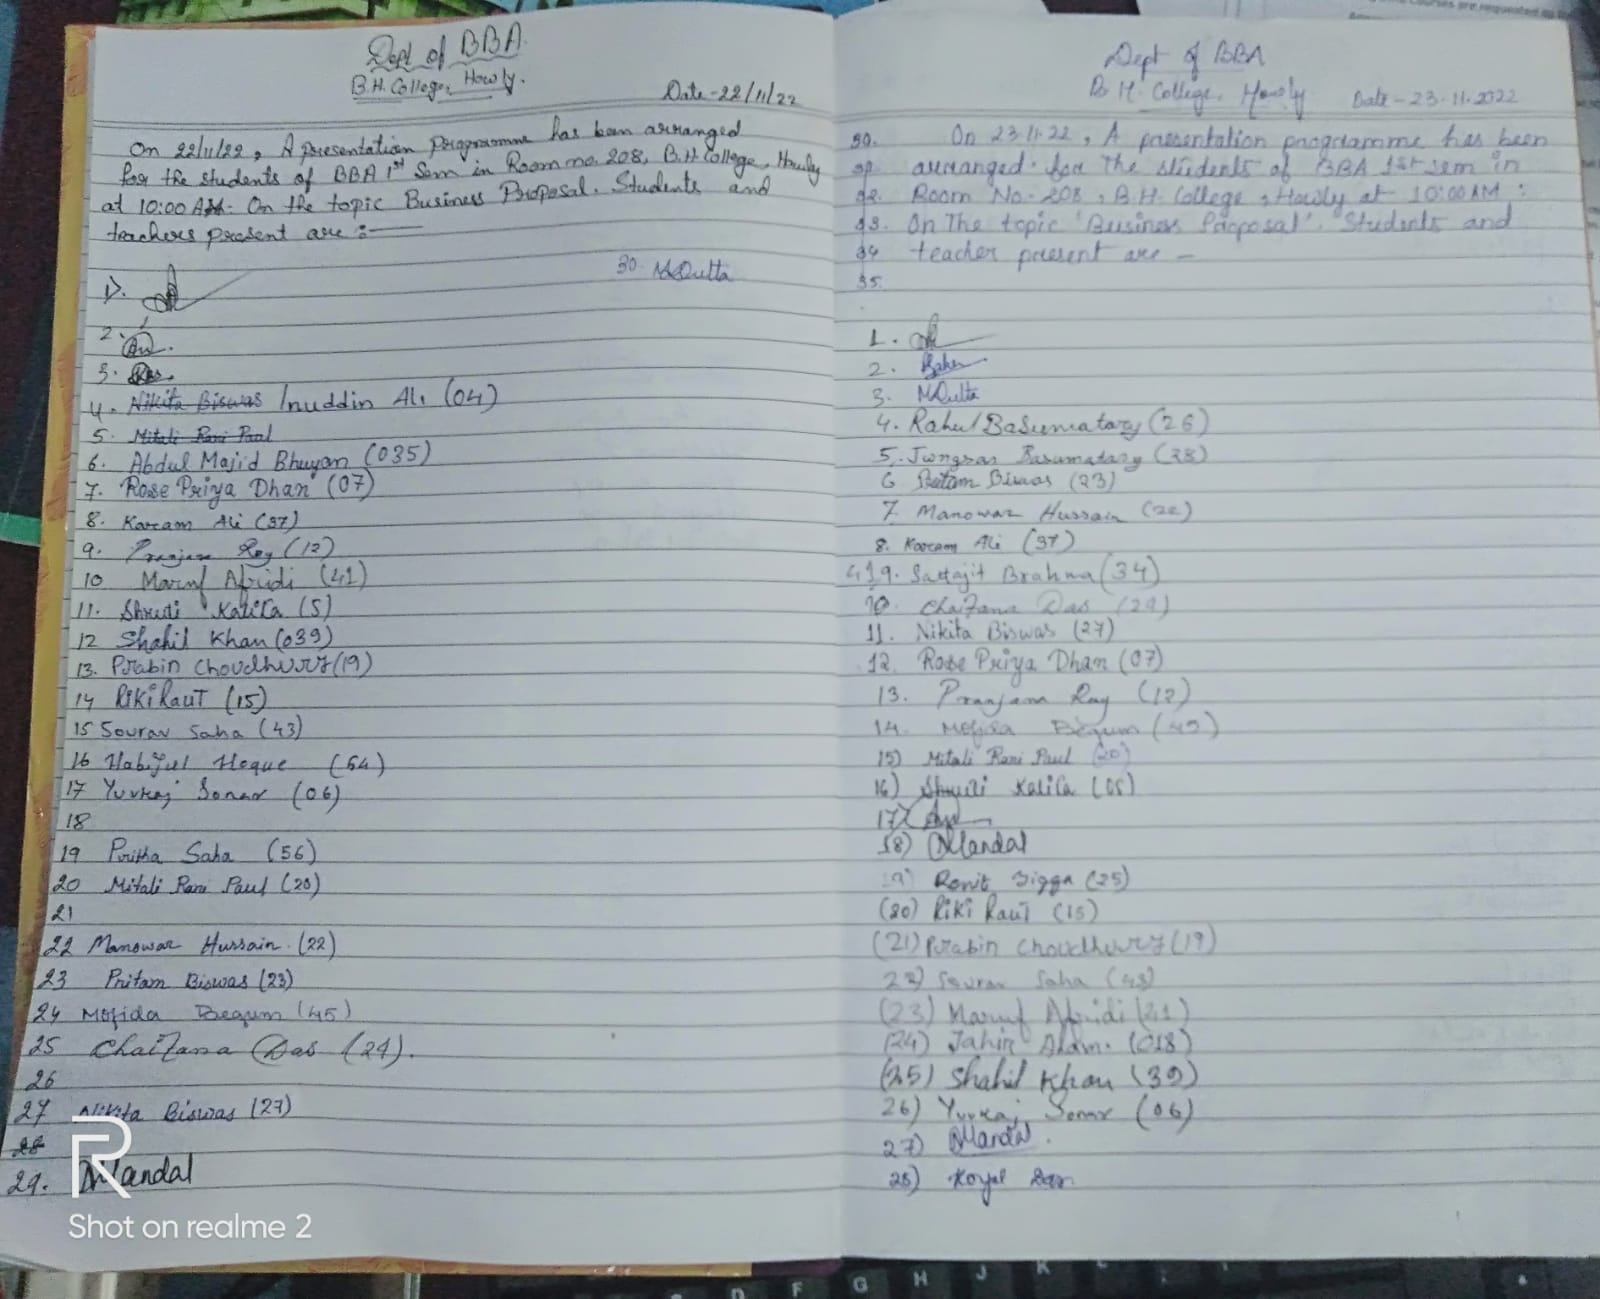 Dept of BBA
B.H. College, Howly.
Date-22/11/22
On 22/11/22, A presentation Programme has been arranged
for the students of BBA 1st Sem in Room no. 208, B.H. College, Howly
at 10:00 AM. On the topic Business Proposal. Students and
teachers present are :—
1).
30. MDutta
2.
3.
4. Nikita Biswas Inuddin Ali (04)
5. Mitali Rani Paul
6. Abdul Majid Bhuyan (035)
7. Rose Priya Dhan (07)
8. Karam Ali (37)
9. Pranjam Ray (12)
10 Maruf Afridi (41)
11. Shruti Kalita (5)
12 Shahil Khan (039)
13. Prabin Choudhury (19)
14 Riki Raut (15)
15 Sourav Saha (43)
16 Habijul Hoque (54)
17 Yuvraj Sonar (06)
18
19 Pritha Saha (56)
20 Mitali Rani Paul (20)
21
22 Manowar Hussain. (22)
23 Pritam Biswas (23)
24 Mofida Begum (45)
25 Chaitana Das (29).
26
27 Nikita Biswas (27)
28
29. Mandal
Shot on realme 2
Dept of BBA
B H. College, Howly
Date-23.11.2022
On 23.11.22, A presentation programme has been
arranged for the students of BBA 1st sem in
Room No-208, B.H. College, Howly at 10:00 AM :
On The topic 'Business Proposal'. Students and
teacher present are -
35.
1.
2.
3. MDutta
4. Rahul Basumatary (26)
5. Basumatary (28)
6 Pritam Biswas (23)
7. Manowar Hussain (22)
8. Karam Ali (37)
9. Brahma (34)
10. Chaitana Das (29)
11. Nikita Biswas (27)
12. Rose Priya Dhan (07)
13. Pranjam Ray (12)
14. Mofida Begum (45)
15) Mitali Rani Paul (20)
16) Shruti Kalita (05)
17)
18) Mandal
19) Ronit Tigga (25)
(20) Riki Raut (15)
(21) Prabin Choudhury (19)
22) Sourav Saha (43)
(23) Maruf Afridi (41)
(24) Jahir Alam. (018)
(25) Shahil Khan (39)
26) Yuvraj Sonar (06)
27) Mandal.
28) Koyel Das